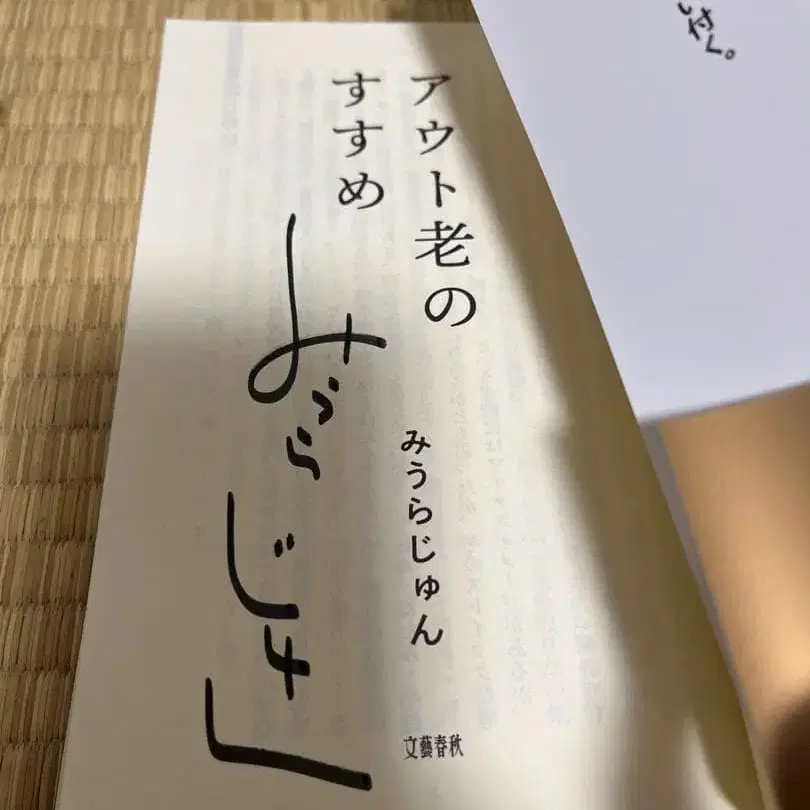 し付く。
アウト老の
すすめ
みうらじゅん
みうらじゅん
文藝春秋